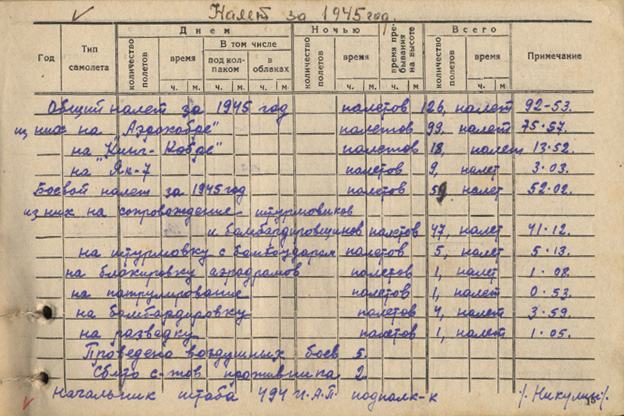 Налет за 1945 год
Год
Тип самолета
Днем
Ночью
Всего
Примечание
количество полетов
время
В том числе
под колпаком
в облаках
количество полетов
время
время пребывания на высоте
количество полетов
время
ч. м. ч. м. ч. м. ч. м. ч. м. ч. м.
Общий налет за 1945 год налетов 126, налет 92-53.
из них на "Аэрокобре" налетов 99, налет 75-57.
на "Кинг-Кобре" налетов 18, налет 13-52
на Як-7 налетов 9, налет 3-03.
Боевой налет за 1945 год налетов 59 налет 52-02.
из них на сопровождение штурмовиков
и бомбардировщиков налетов 47, налет 41-12.
на штурмовку с бомбоударом налетов 5, налет 5-13.
на блокировку аэродромов налетов 1, налет 1-08.
на патрулирование налетов 1, налет 0-53.
на бомбардировку налетов 4, налет 3-59.
на разведку налетов 1, налет 1-05.
Проведено воздушных боев 5.
Сбито с-тов противника 2
Начальник штаба 494 И.А.П. подполк-к /. Никулин/.